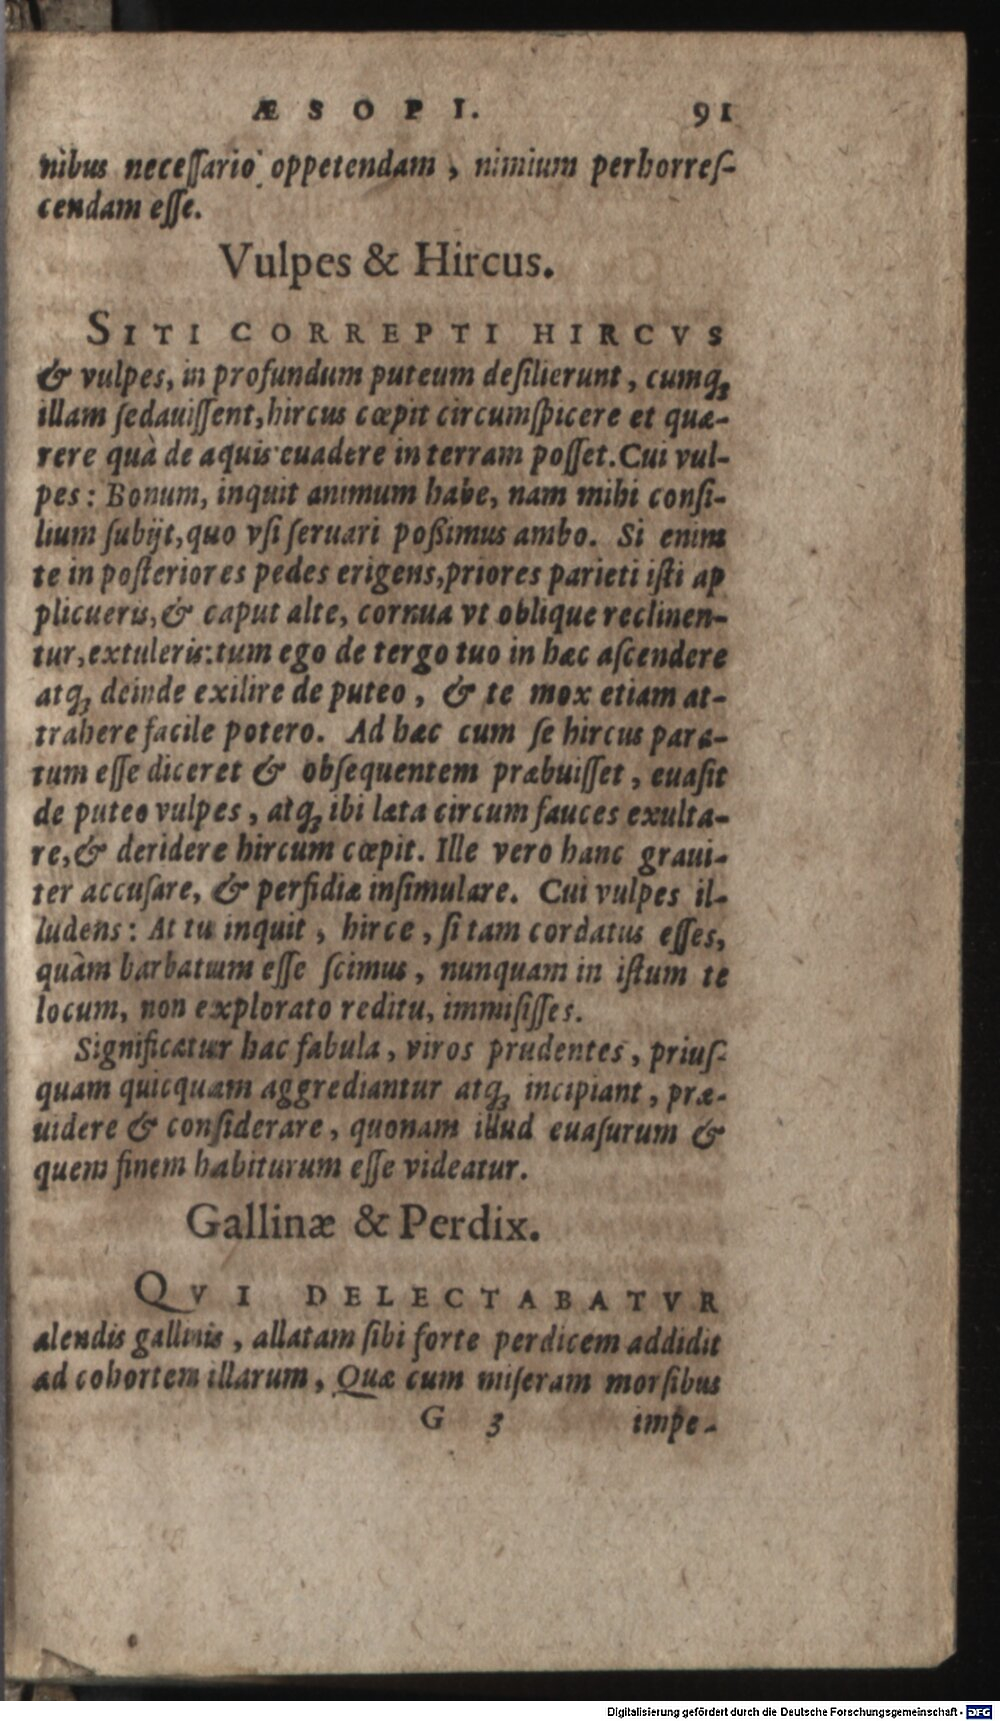 ÆSOPI. 91
nibus necessario oppetendam, nimium perhorreſ-
cendam eſſe.
Vulpes & Hircus.
SITI CORREPTI HIRCVS
& vulpes, in profundum puteum deſilierunt, cumq́;
illam ſedauiſſent, hircus cœpit circumſpicere et quæ-
rere quà de aquis euadere in terram poſſet. Cui vul-
pes: Bonum, inquit animum habe, nam mihi conſi-
lium ſubijt, quo vſi ſeruari poßimus ambo. Si enim
te in poſteriores pedes erigens, priores parieti iſti ap
plicueris, & caput alte, cornua vt oblique reclinen-
tur, extuleris: tum ego de tergo tuo in hæc aſcendere
atq; deinde exilire de puteo, & te mox etiam at-
trahere facile potero. Ad hæc cum ſe hircus para-
tum eſſe diceret & obſequentem præbuiſſet, euaſit
de puteo vulpes, atq; ibi læta circum fauces exulta-
re, & deridere hircum cœpit. Ille vero hanc graui-
ter accuſare, & perfidiæ inſimulare. Cui vulpes il-
ludens: At tu inquit, hirce, ſi tam cordatus eſſes,
quàm barbatum eſſe ſcimus, nunquam in iſtum te
locum, non explorato reditu, immiſiſſes.
Significatur hac fabula, viros prudentes, priuſ-
quam quicquam aggrediantur atq; incipiant, præ-
uidere & conſiderare, quonam illud euaſurum &
quem finem habiturum eſſe videatur.
Gallinæ & Perdix.
QVI DELECTABATVR
alendis gallinis, allatam ſibi forte perdicem addidit
ad cohortem illarum, Quæ cum miſeram morſibus
G 3 impe-
Digitalisierung gefördert durch die Deutsche Forschungsgemeinschaft - DFG